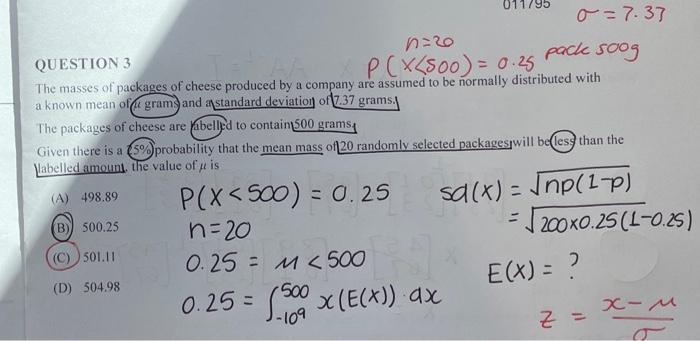 011795
σ = 7.37
n=20
P(X<500) = 0.25 pack 500g
QUESTION 3
The masses of packages of cheese produced by a company are assumed to be normally distributed with
a known mean of μ grams and a standard deviation of 7.37 grams.
The packages of cheese are labelled to contain 500 grams.
Given there is a 25% probability that the mean mass of 20 randomly selected packages will be less than the
labelled amount, the value of μ is
(A) 498.89
(B) 500.25
(C) 501.11
(D) 504.98
P(X<500) = 0.25
n=20
0.25 = μ < 500
0.25 = ∫₋₁₀₉⁵⁰⁰ x(E(X)) · dx
sd(X) = √np(1-p)
= √200×0.25(1-0.25)
E(X) = ?
z = x-μ / σ